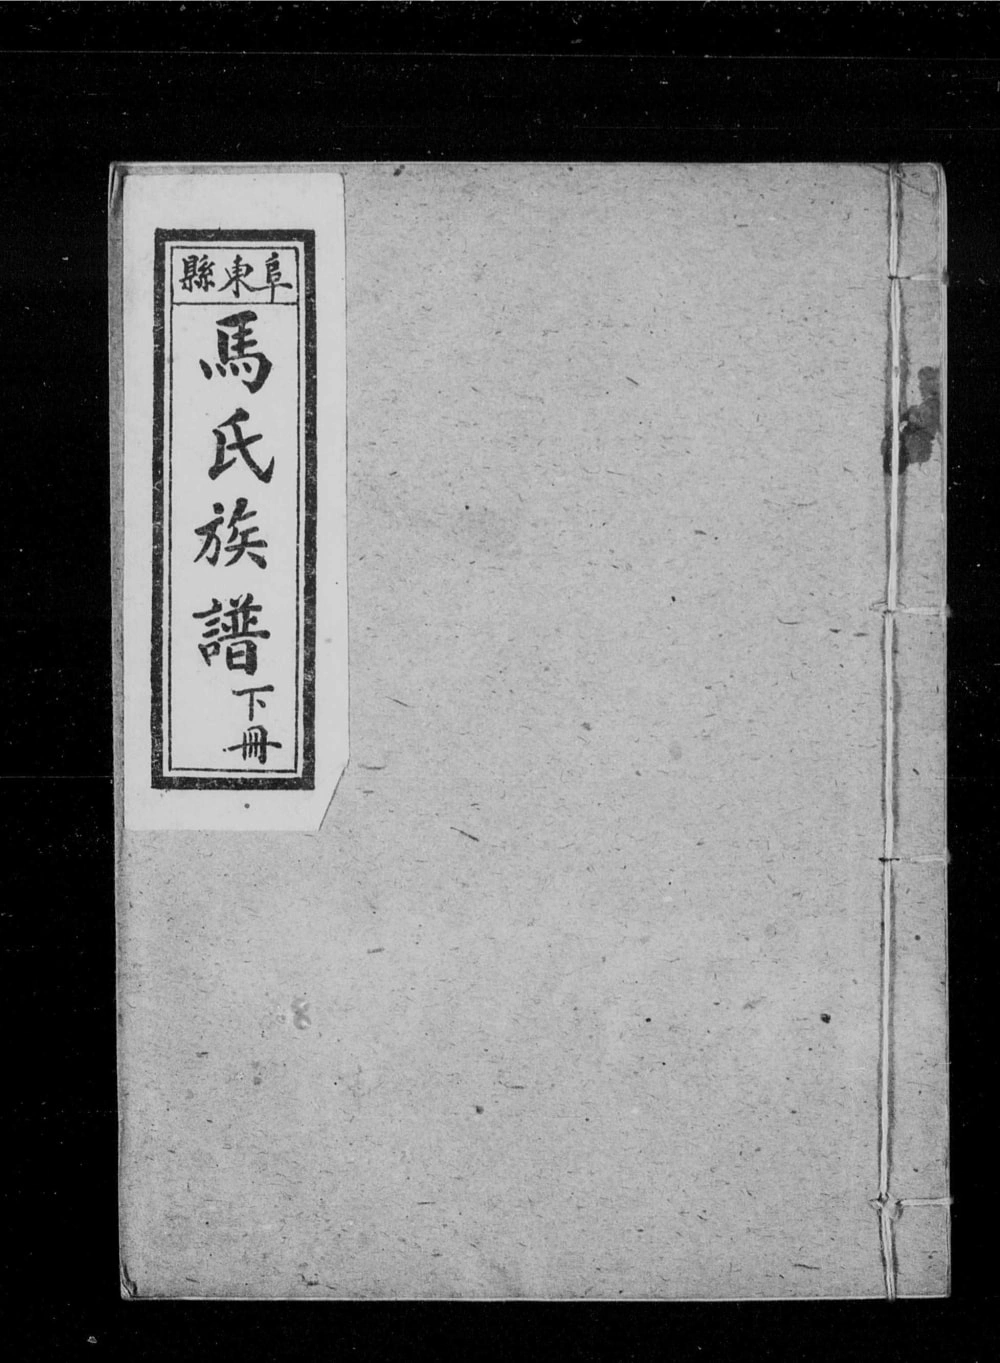 阜東縣
馬氏族譜
下冊